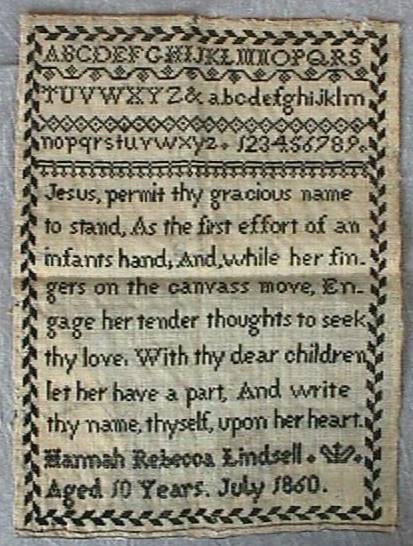 ABCDEFGHIJKLMNOPQRS
TUVWXYZ& abcdefghijklm
nopqrstuvwxyz. 123456789.
Jesus, permit thy gracious name
to stand, As the first effort of an
infants hand; And, while her fin-
gers on the canvass move, En-
gage her tender thoughts to seek
thy love. With thy dear children
let her have a part, And write
thy name, thyself, upon her heart.
Hannah Rebecca Lindsell.
Aged 10 Years. July 1860.